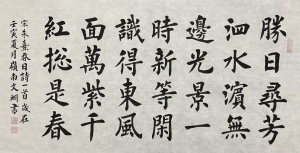 勝日尋芳
泗水濱無
邊光景一
時新等閑
識得東風
面萬紫千
紅揔是春
宋朱熹春日詩一首歲在
壬寅夏月嶺南文炯書